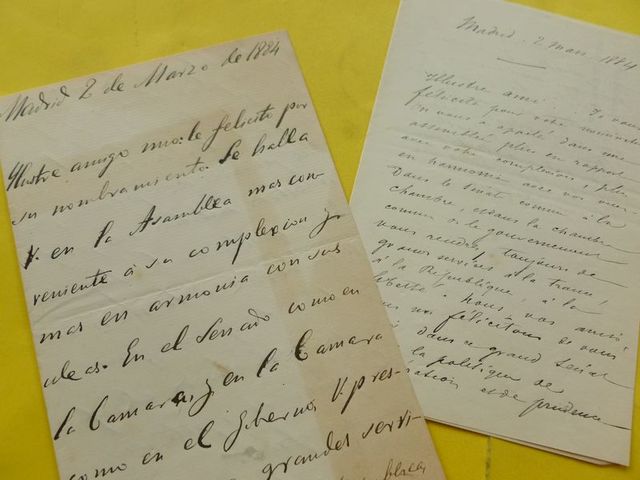 Madrid 2 de Marzo de 1884
Illustre amigo mio: le felicito por
su nombramiento. Se halla
V. en la Asamblea mas con-
veniente á su complexion y
mas en armonia con sus
ideas. En el Senado como en
la Camara, y en la Camara
como en el gobierno, V. pres-
grandes servi-
Madrid. 2 mars 1884
Illustre ami: Je vous
félicite pour votre
assemblée plus en rapport
avec votre complexion, plus
en harmonie avec vos
Dans le Senat comme à la
chambre, dans la chambre
comme le gouvernement
vous rendrez toujours de
grands services à la France,
à la République, à la
liberté. Nous vos amis
nous félicitons de vous
dans ce grand Sénat
la politique de
et de prudence